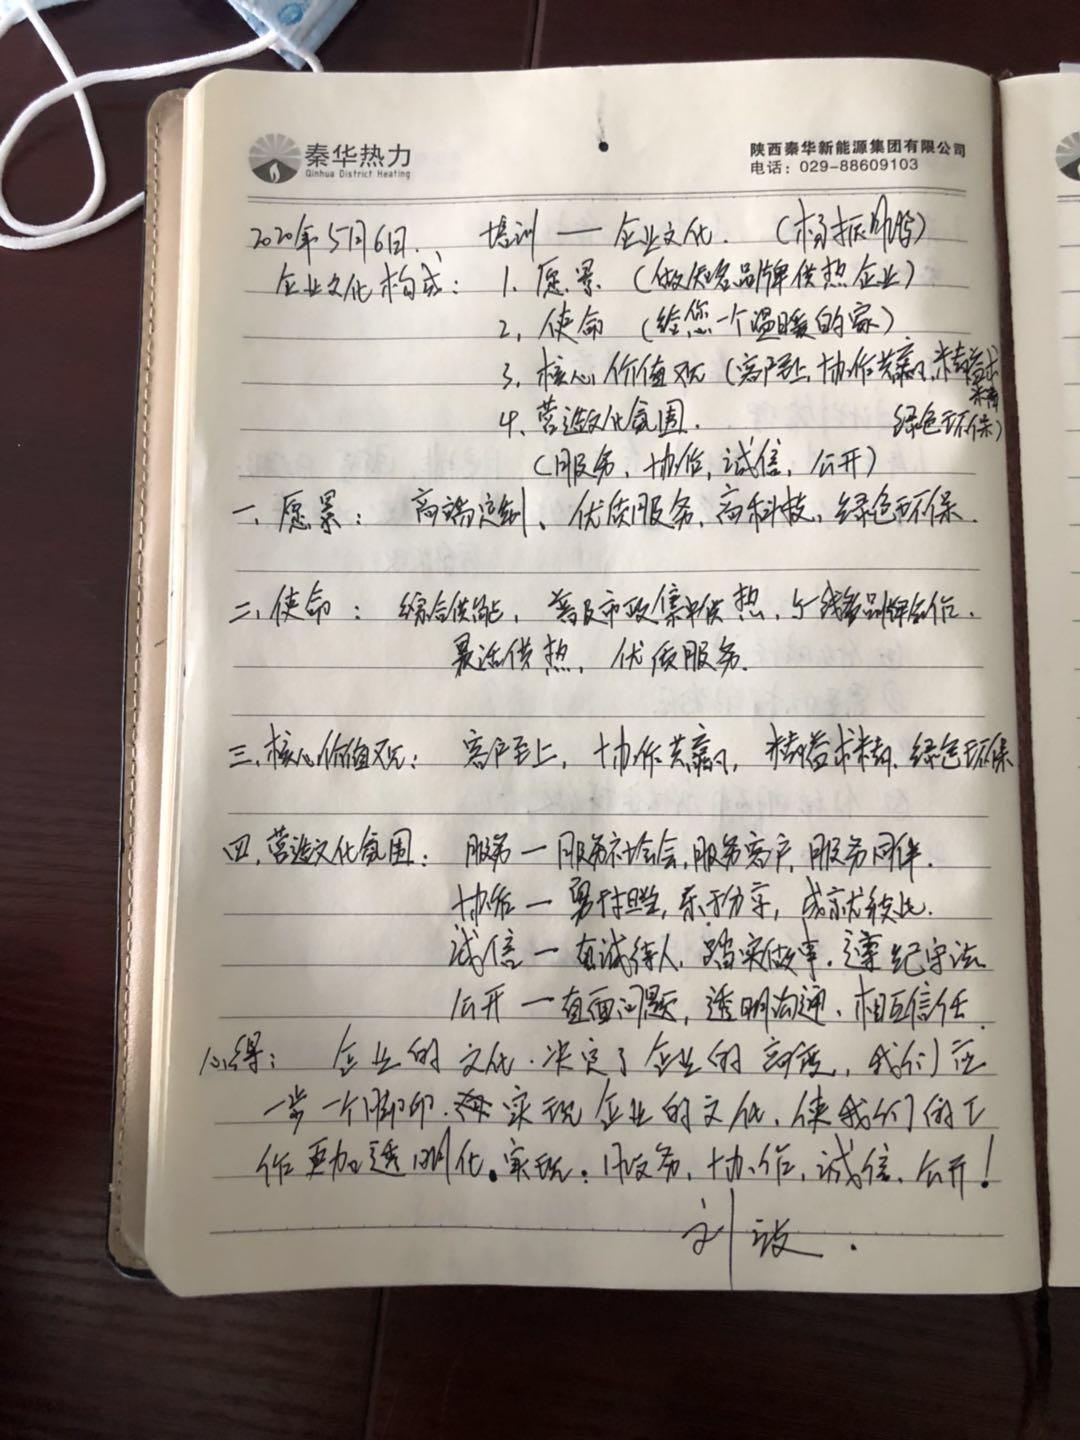 秦华热力
Qinhua District Heating
陕西秦华新能源集团有限公司
电话：029-88609103
2020年5月6日、 培训 — 企业文化. （杨振鹏）
企业文化构成： 1. 愿景（做知名品牌供热企业）
2. 使命（给您一个温暖的家）
3. 核心价值观（客户至上, 协作共赢, 精益求精
绿色环保）
4. 营造文化氛围.
（服务, 协作, 诚信, 公开）
一、愿景： 高端定制、优质服务、高科技、绿色环保.
二、使命： 综合供能, 普及市政集中供热, 合作.
供热, 优质服务.
三、核心价值观： 客户至上, 协作共赢, 精益求精、绿色环保
四、营造文化氛围： 服务 — 服务社会, 服务客户, 服务同伴.
协作 — 勇于担当, 乐于分享, 成就彼此.
诚信 — 真诚待人, 踏实做事, 遵纪守法
公开 — 直面问题, 透明沟通、相互信任.
心得： 企业的文化, 决定了企业的高度, 我们应
一步一个脚印, 实现企业的文化, 使我们的工
作更加透明化。实现: 服务, 协作, 诚信、公开！
刘